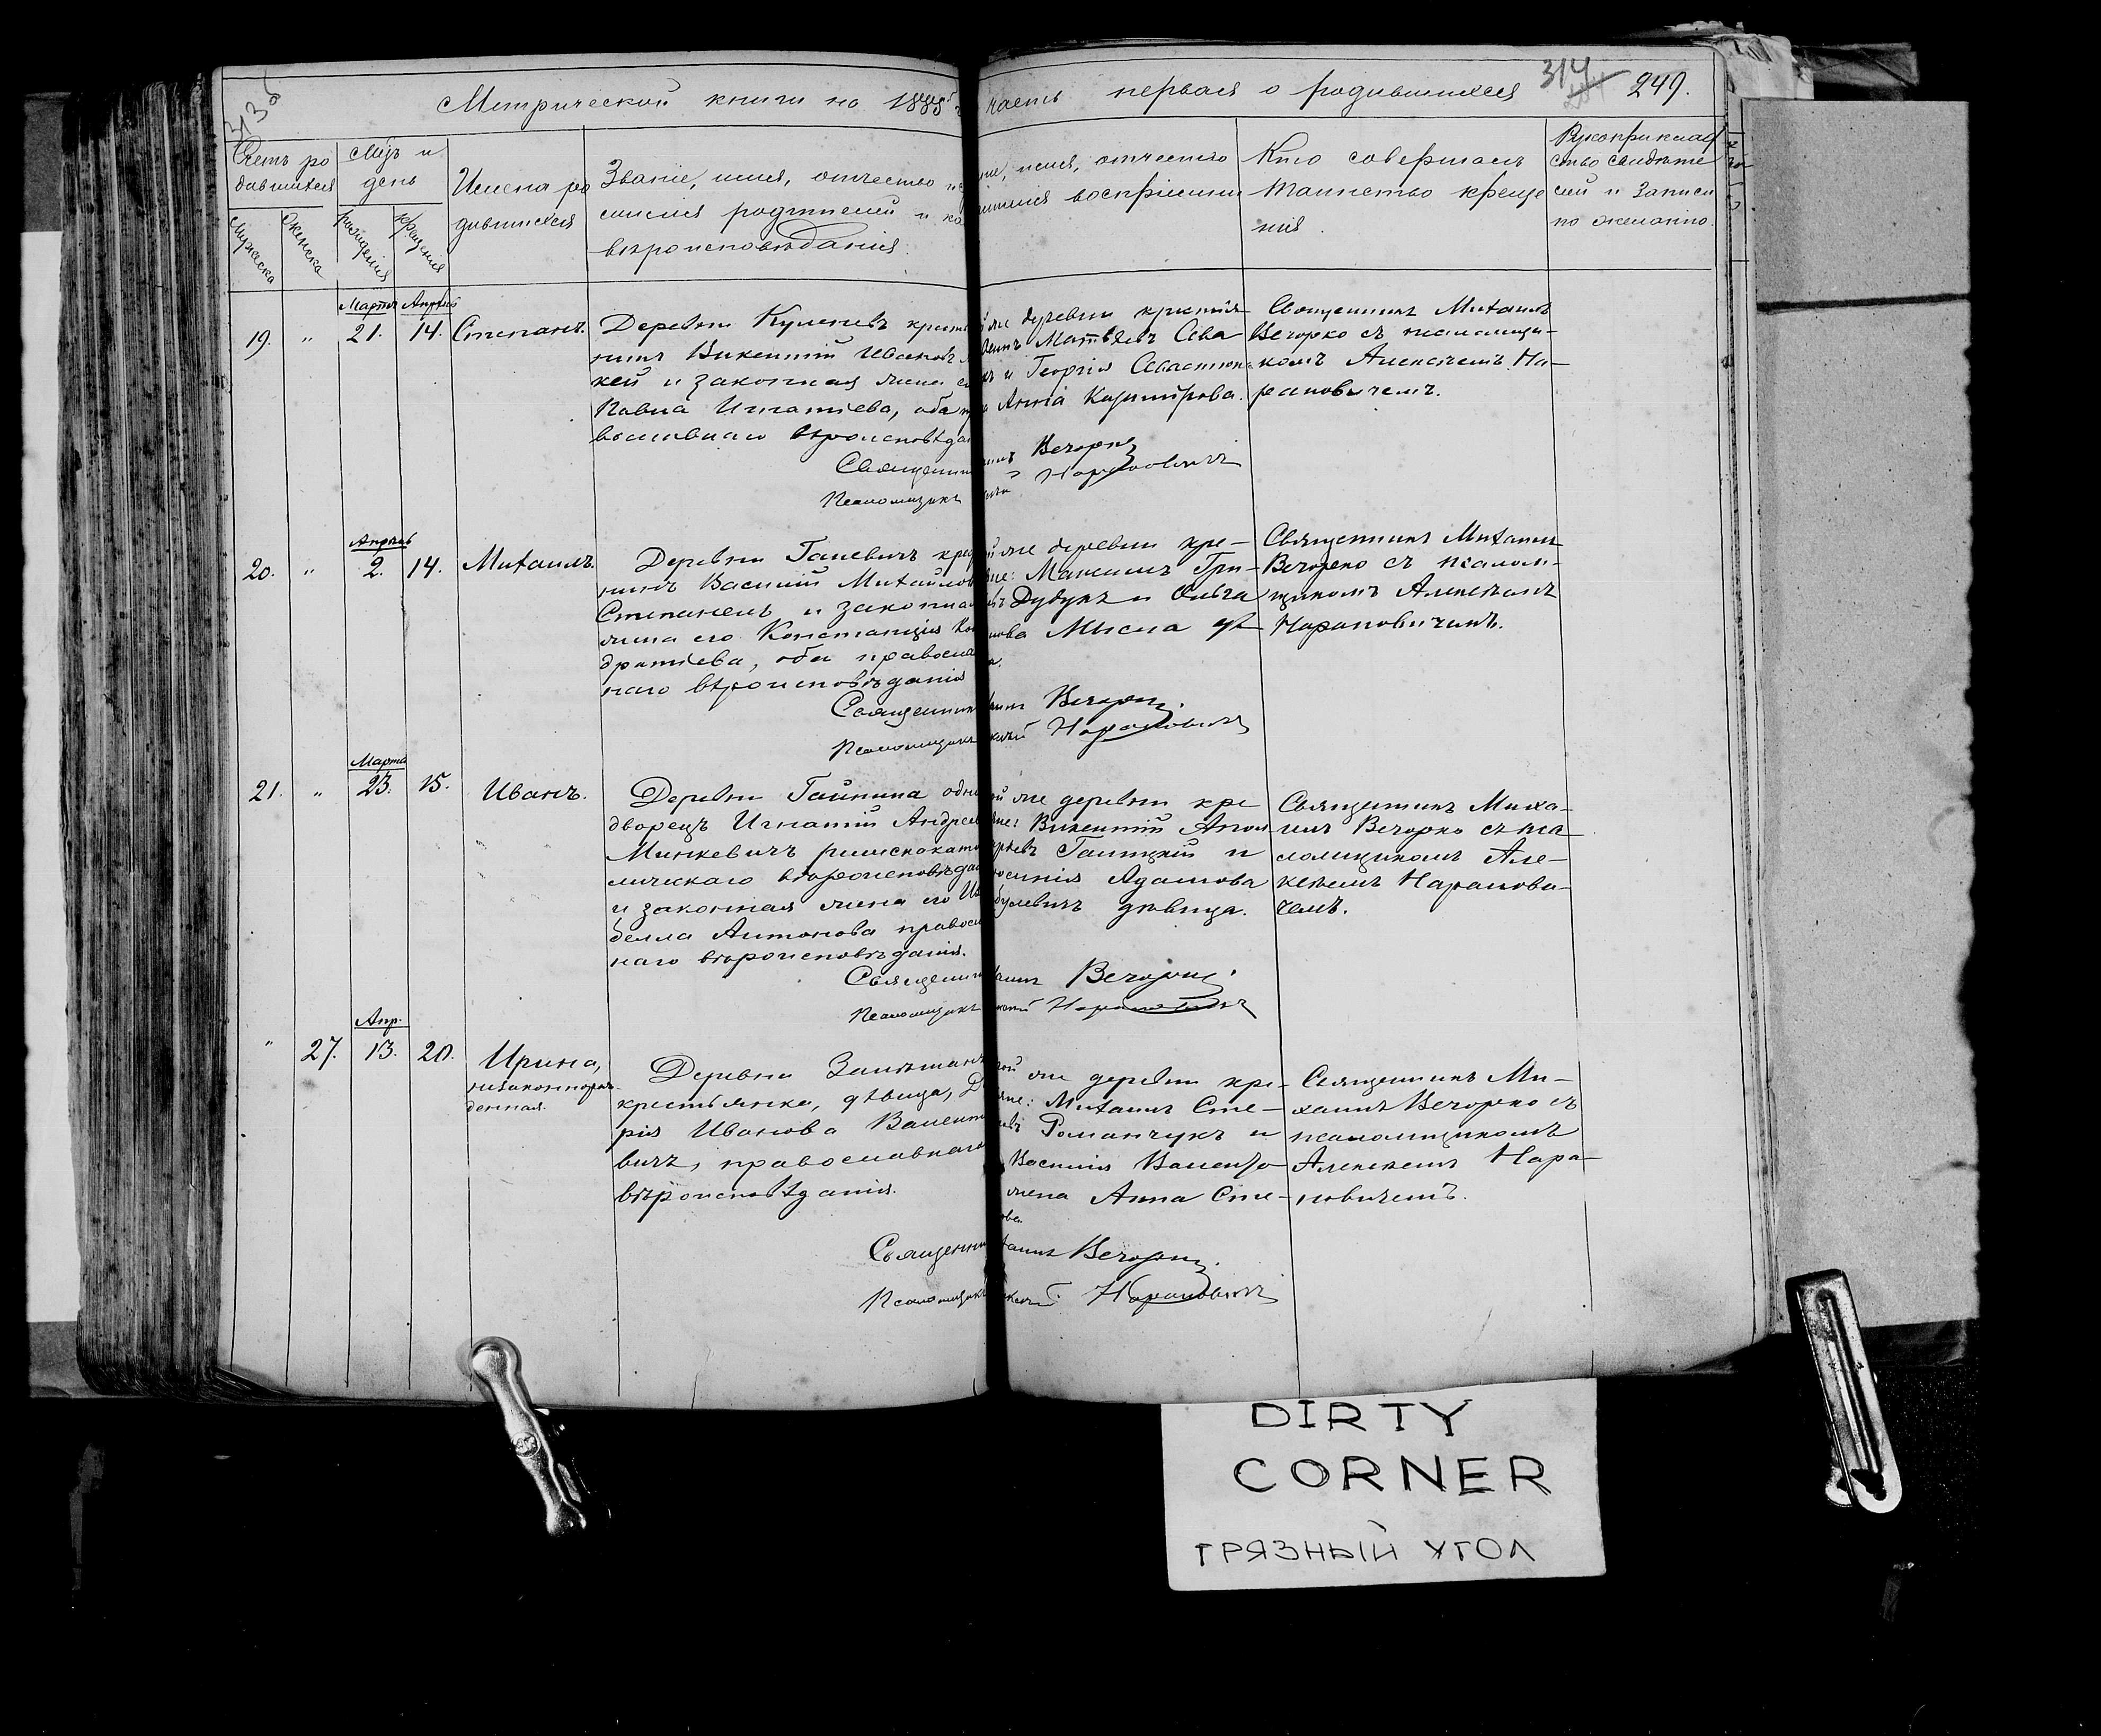 313 об
Метрической книги на 1885 г. часть первая о родившихся
314
249.
Счетъ ро
дившихся
Мужеска
Женска
Мѣсяцъ и
день
рожденія
крещенія
Имена ро
дившихся
Званіе, имя, отчество и
милія родителей и ка
вѣроисповѣданія.
имя, отчество
милія воспріемни
Кто совершалъ
таинство креще
нія.
Рукоприклад
ство свидѣте
лей и записи
по желанію.
19. " Марта 21. Апрѣля 14. Степанъ.
Деревни
нинъ Викентій Ивановъ
кей и законная жена
Игнатіева, оба
вославнаго вѣроисповѣда
Священни
Псаломщикъ
же деревни крестья
Матвѣевъ Сева
и Георгія Севастюк
Анна Казимірова.
Вечорко
Наранович
Священникъ Михаилъ
Вечорко съ псаломщи-
комъ Алексѣемъ На-
рановичемъ.
20. " Апрѣль 2. 14. Михаилъ.
Деревни Галевичъ крес
нинъ Василій Михайлов
и законная
жена его Констанція Кон
дратіева, оба правосла
наго вѣроисповѣданія
Священник
Псаломщикъ
же деревни кре-
не: Максимъ Гри-
Дудукъ и Ольга
дѣ
Вечорко.
Наранович
Священникъ Михаилъ
Вечорко съ псалом-
щикомъ Алексѣемъ
Нарановичемъ.
21. " Марта 23. 15. Иванъ.
Деревни Гайнина одно
дворецъ Игнатій Андреев
Минкевичъ римскокато
лическаго вѣроисповѣдан
и законная жена его Иза
белла Антонова правосл
наго вѣроисповѣданія.
Священни
Псаломщикъ
ой же деревни кре
яне: Викентій
Галицкій и
Адамова
булевичъ дѣвица.
Вечорко.
Наранович
Священникъ Миха-
илъ Вечорко съ пса-
ломщикомъ Але-
ксѣемъ Наранови-
чемъ.
" 27. Апр. 13. 20. Ирина,
незаконнорож-
денная.
Деревни
крестьянка, дѣвица, Д
рія Иванова Валент
вичъ, православнаго
вѣроисповѣданія.
Священни
Псаломщикъ
той же деревни кре-
яне: Михаилъ Сте-
Романчукъ и
Василія
жена Анна Сте-
ова.
Вечорко.
Наранович
Священникъ Ми-
хаилъ Вечорко съ
псаломщикомъ
Алексѣемъ Нара-
новичемъ.
DIRTY
CORNER
ГРЯЗНЫЙ УГОЛ